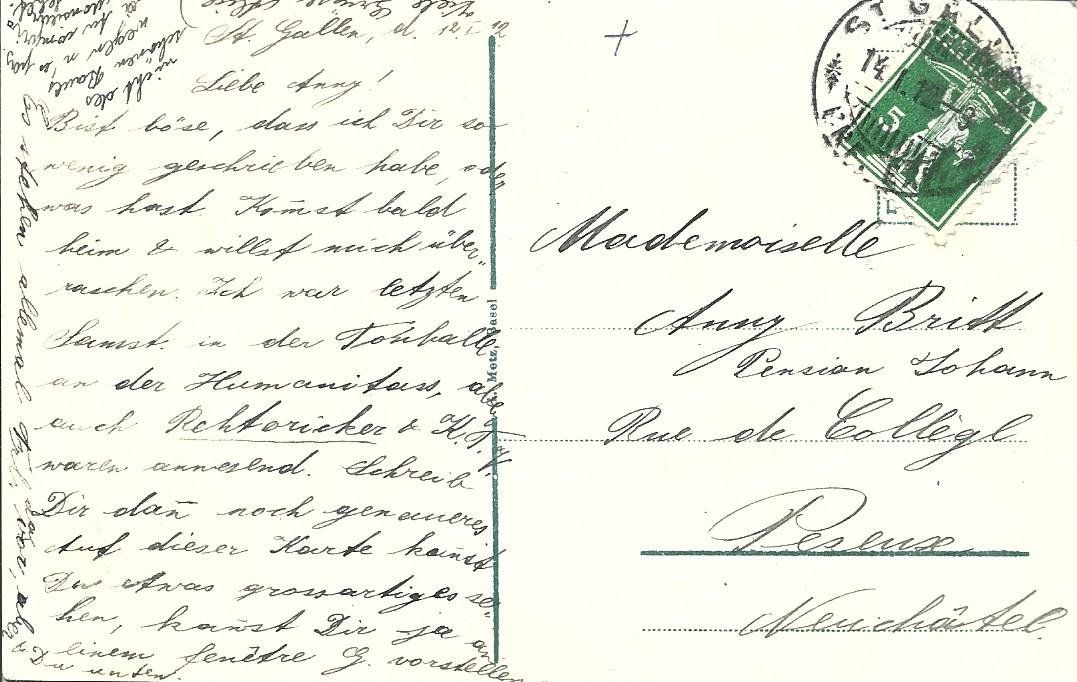 St. Gallen, d. 12.I.12
Liebe Anny!
Bist böse, dass ich Dir so
wenig geschrieben habe, oder
was hast. Kom̄st bald
heim & willst mich über„
raschen. Ich war letzten
Samst. in der Tonhalle
an der Humanitass, aber
auch Rehtoricker & K.T.V.
waren anwesend. Schreib
Dir dan̄ noch genaueres
Auf dieser Karte kan̄st
Du etwas grossartiges se„
hen, kan̄st Dir ja an
einem fenêtre G. vorstellen
& Du unten.
Es stehen allemal
nicht des
schönen Raues
wegen
HELVETIA
5
ST. GALLEN
14.I.12.-9
Mademoiselle
Anny Britt
Pension Johann
Rue de Collègl
Peseux
Neuchâtel.
Metz, Basel